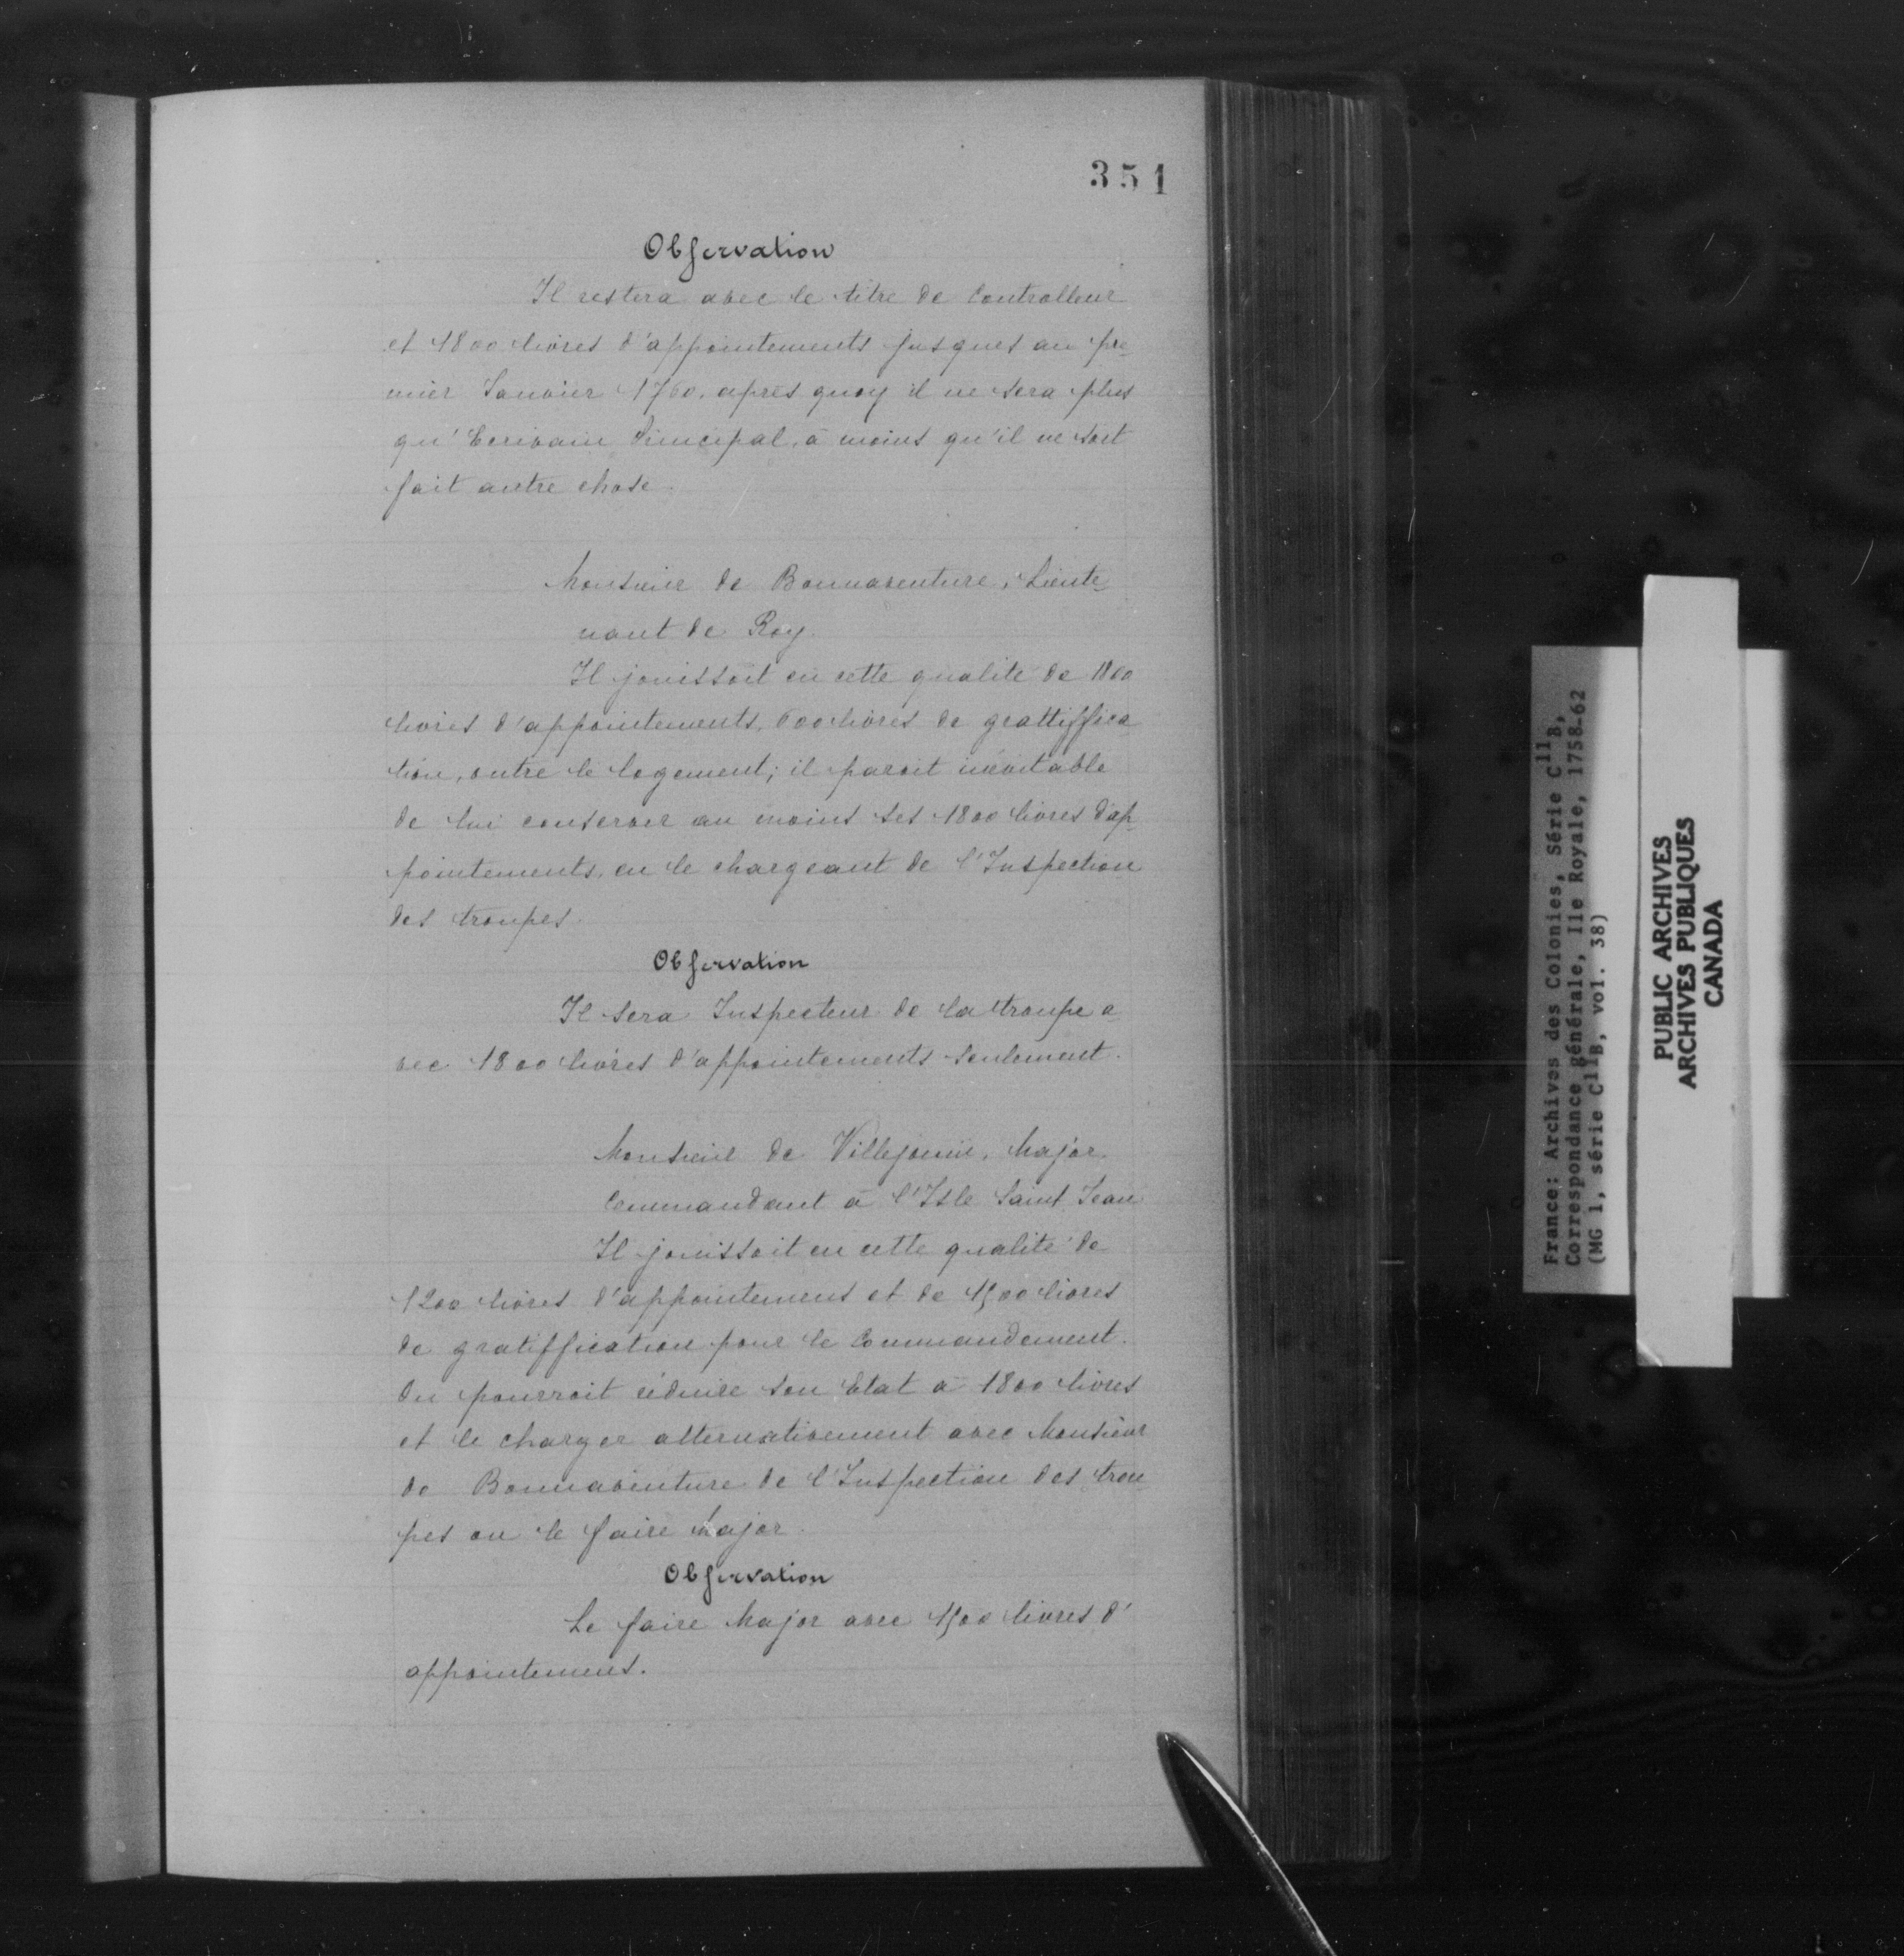 351
Observation
Il restera avec le titre de Controlleur
et 1800 livres d'appointements jusques au pre-
mier Janvier 1760, après quoy il ne sera plus
qu'Ecrivain Principal, à moins qu'il ne soit
fait autre chose.
Monsieur de Bonnaventure, Lieute-
nant de Roy.
Il jouissoit en cette qualité de 1800
livres d'appointements, 600 livres de grattiffica
tion, outre le logement; il paroit inévitable
de lui conserver au moins ses 1800 livres d'ap-
pointements, en le chargeant de l'Inspection
des troupes.
Observation
Il sera Inspecteur de la troupe a-
vec 1800 livres d'appointements seulement.
Monsieur de Villejouin, Major
Commandant à l'Isle Saint Jean
Il jouissoit en cette qualité de
1200 livres d'appointemens et de 1500 livres
de gratiffication pour le Commandement.
On pourroit réduire son Etat à 1800 livres
et le charger alternativement avec Monsieur
de Bonnaventure de l'Inspection des trou-
pes ou le faire Major.
Observation
Le faire Major avec 1500 livres d'
appointemens.
France: Archives des Colonies, Série C11B,
Correspondance générale, Ile Royale, 1758-62
(MG 1, série C11B, vol. 38)
PUBLIC ARCHIVES
ARCHIVES PUBLIQUES
CANADA